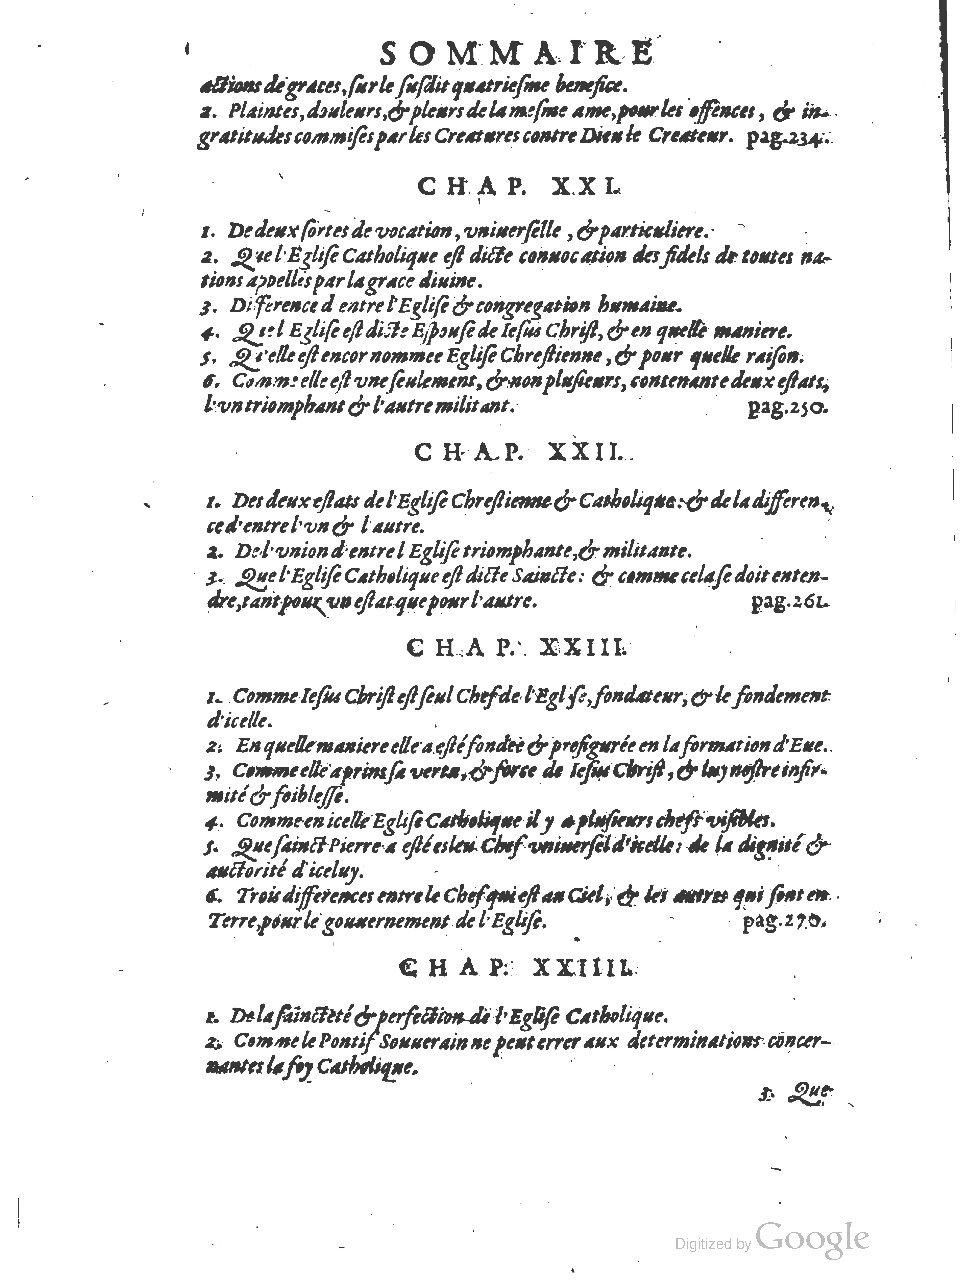 SOMMAIRE
actions de graces, sur le susdit quatriesme benefice.
2. Plaintes, douleurs, & pleurs de la mesme ame, pour les offences, & in-
gratitudes commises par les Creatures contre Dieu le Createur. pag.234.
CHAP. XXI.
1. De deux sortes de vocation, vniuerselle, & particuliere.
2. Que l'Eglise Catholique est dicte conuocation des fidels de toutes na-
tions appellés par la grace diuine.
3. Difference d'entre l'Eglise & congregation humaine.
4. Que l'Eglise est dicte Espouse de Iesus Christ, & en quelle maniere.
5. Qu'elle est encor nommee Eglise Chrestienne, & pour quelle raison.
6. Comme elle est vne seulement, & non plusieurs, contenante deux estats,
l'vn triomphant & l'autre militant. pag.250.
CHAP. XXII.
1. Des deux estats de l'Eglise Chrestienne & Catholique: & de la differen-
ce d'entre l'vn & l'autre.
2. De l'vnion d'entre l'Eglise triomphante, & militante.
3. Que l'Eglise Catholique est dicte Saincte: & comme cela se doit enten-
dre, tant pour vn estat que pour l'autre. pag.261.
CHAP. XXIII.
1. Comme Iesus Christ est seul Chef de l'Eglise, fondateur, & le fondement
d'icelle.
2. En quelle maniere elle a esté fondée & prefigurée en la formation d'Eue.
3. Comme elle a prins sa vertu, & force de Iesus Christ, & luy nostre infir-
mité & foiblesse.
4. Comme en icelle Eglise Catholique il y a plusieurs chefs visibles.
5. Que sainct Pierre a esté esleu Chef vniuersel d'icelle: de la dignité &
auctorité d'iceluy.
6. Trois differences entre le Chef qui est au Ciel, & les autres qui sont en
Terre, pour le gouuernement de l'Eglise. pag.270.
CHAP. XXIIII.
1. De la saincteté & perfection de l'Eglise Catholique.
2. Comme le Pontif Souuerain ne peut errer aux determinations concer-
nantes la foy Catholique.
3. Que
Digitized by Google